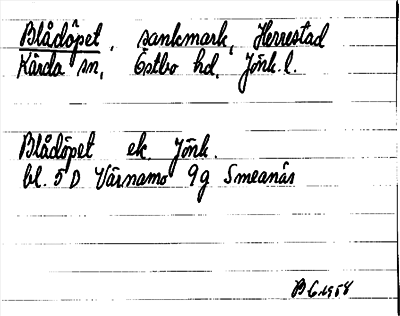 Blådöpet, sankmark, Herrestad
Kärda sn, Östbo hd, Jönk. l.
Blådöpet ek. Jönk.
bl. 5 D Värnamo 9g Smeanäs
B G 1958